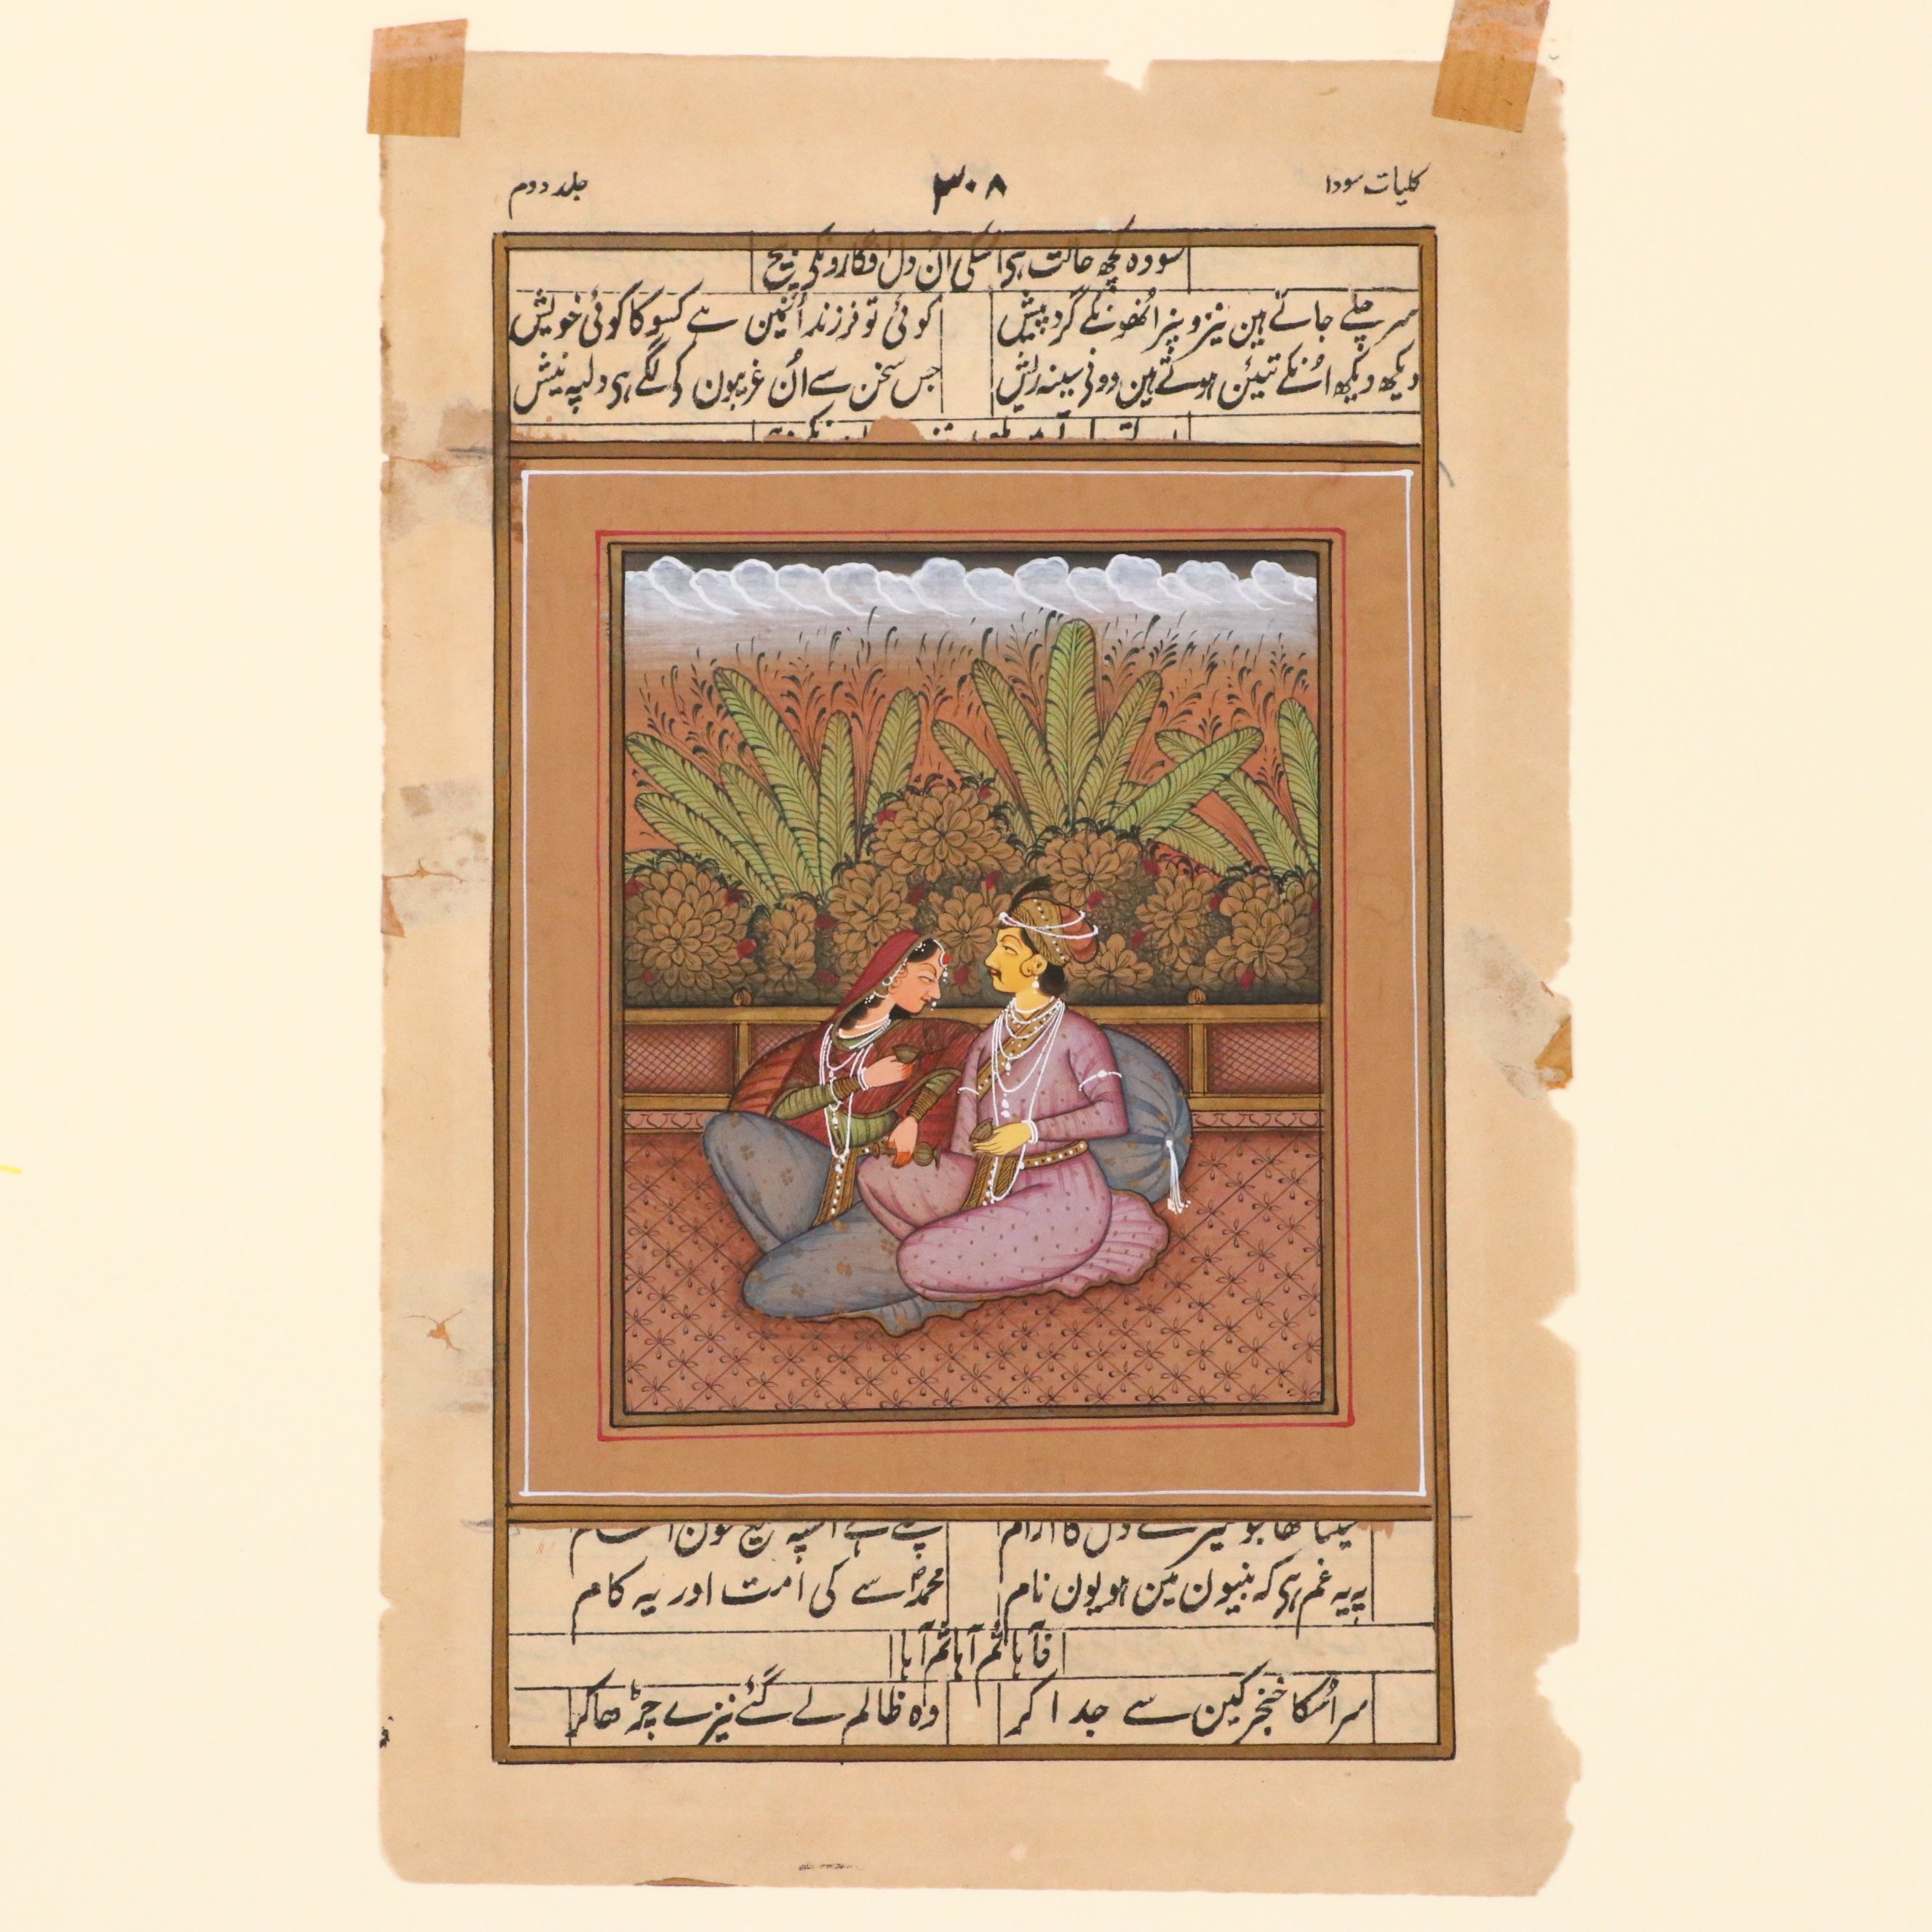 کلیات سودا ۳۰۸ جلد دوم
سودہ کچھ حالت ہی اسکی اُن دل افگارونکی بیچ
سر چلے جاتے ہین نیزو پنر اُنھونکے گرد پیش کوئی تو فرزند اُنمین ہے کسو کا کوئی خویش
دیکھ دیکھ اُنکے تیئن ہوتے ہین دونی سینہ ریش جس سخن سے اُن غریبون کی لگے ہی دلپہ نیش
تھا جو میرے دل کا آرام
پہ یہ غم ہی کہ نبیون مین ہو یون نام محمدؐ سے کی اُمت اور یہ کام
فآہا ثم آہا ثم آہا
سر اُسکا خنجر کین سے جدا کر وہ ظالم لے گئے نیزے چڑھا کر